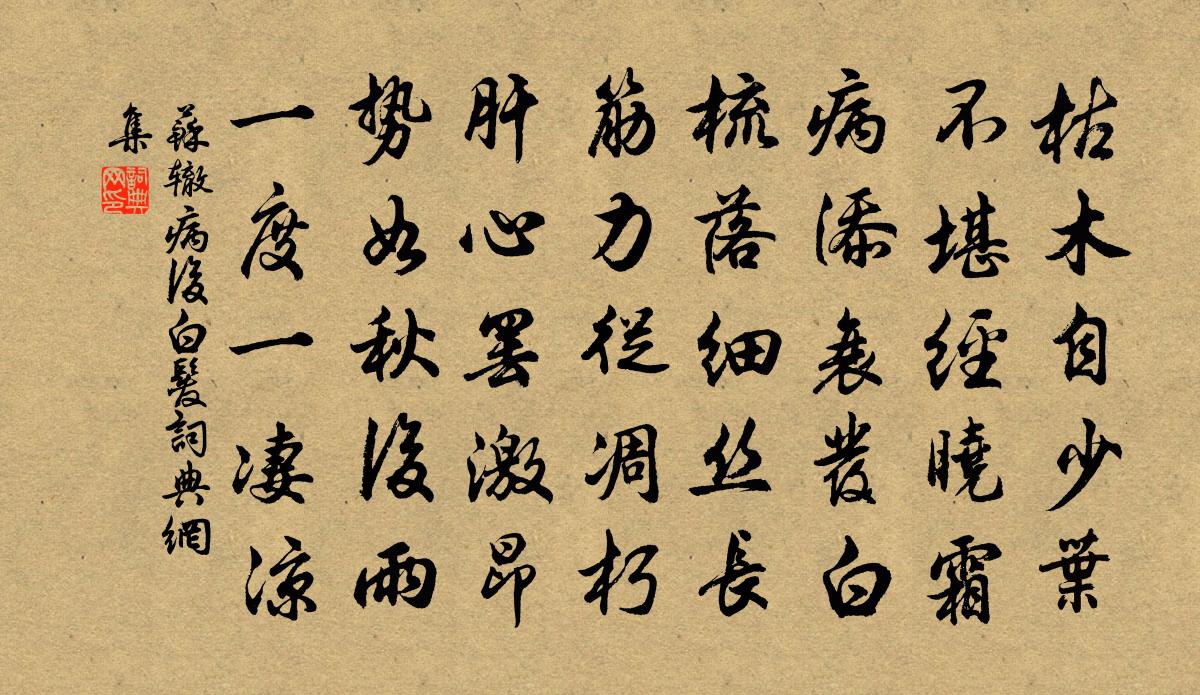 枯木自少葉
不堪經曉霜
病添衰發白
梳落細丝長
筋力從凋朽
肝心罢激昂
势如秋後雨
一度一凄涼
蘇辙病後白髮詞典網
集
詞典
网印